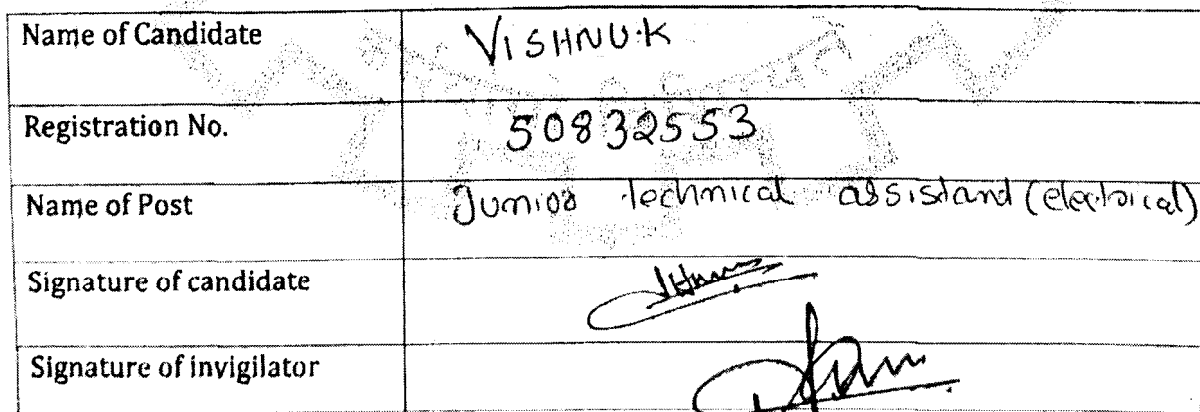 Name of Candidate VISHNU.K
Registration No. 50832553
Name of Post Junior technical assistand (electrical)
Signature of candidate
Signature of invigilator